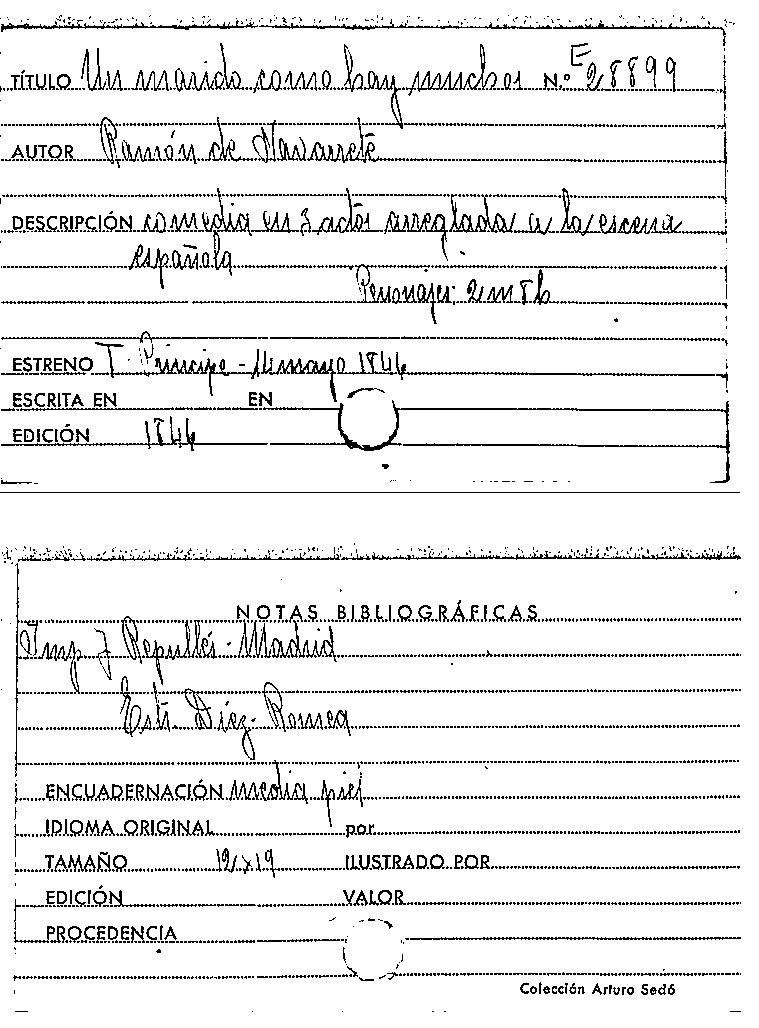 TÍTULO Un marido como hay muchos N.º E 28899
AUTOR Ramón de Navarrete
DESCRIPCIÓN comedia en 3 actos arreglada a la escena
española
Personajes: 2 m 8 h
ESTRENO T. Principe - 14 mayo 1846
ESCRITA EN EN
EDICIÓN 1846
NOTAS BIBLIOGRÁFICAS
Imp J Repullés - Madrid
Estr. Diez. Romea
ENCUADERNACIÓN media piel
IDIOMA ORIGINAL por
TAMAÑO 12 x 19 ILUSTRADO POR
EDICIÓN VALOR
PROCEDENCIA
Colección Arturo Sedó